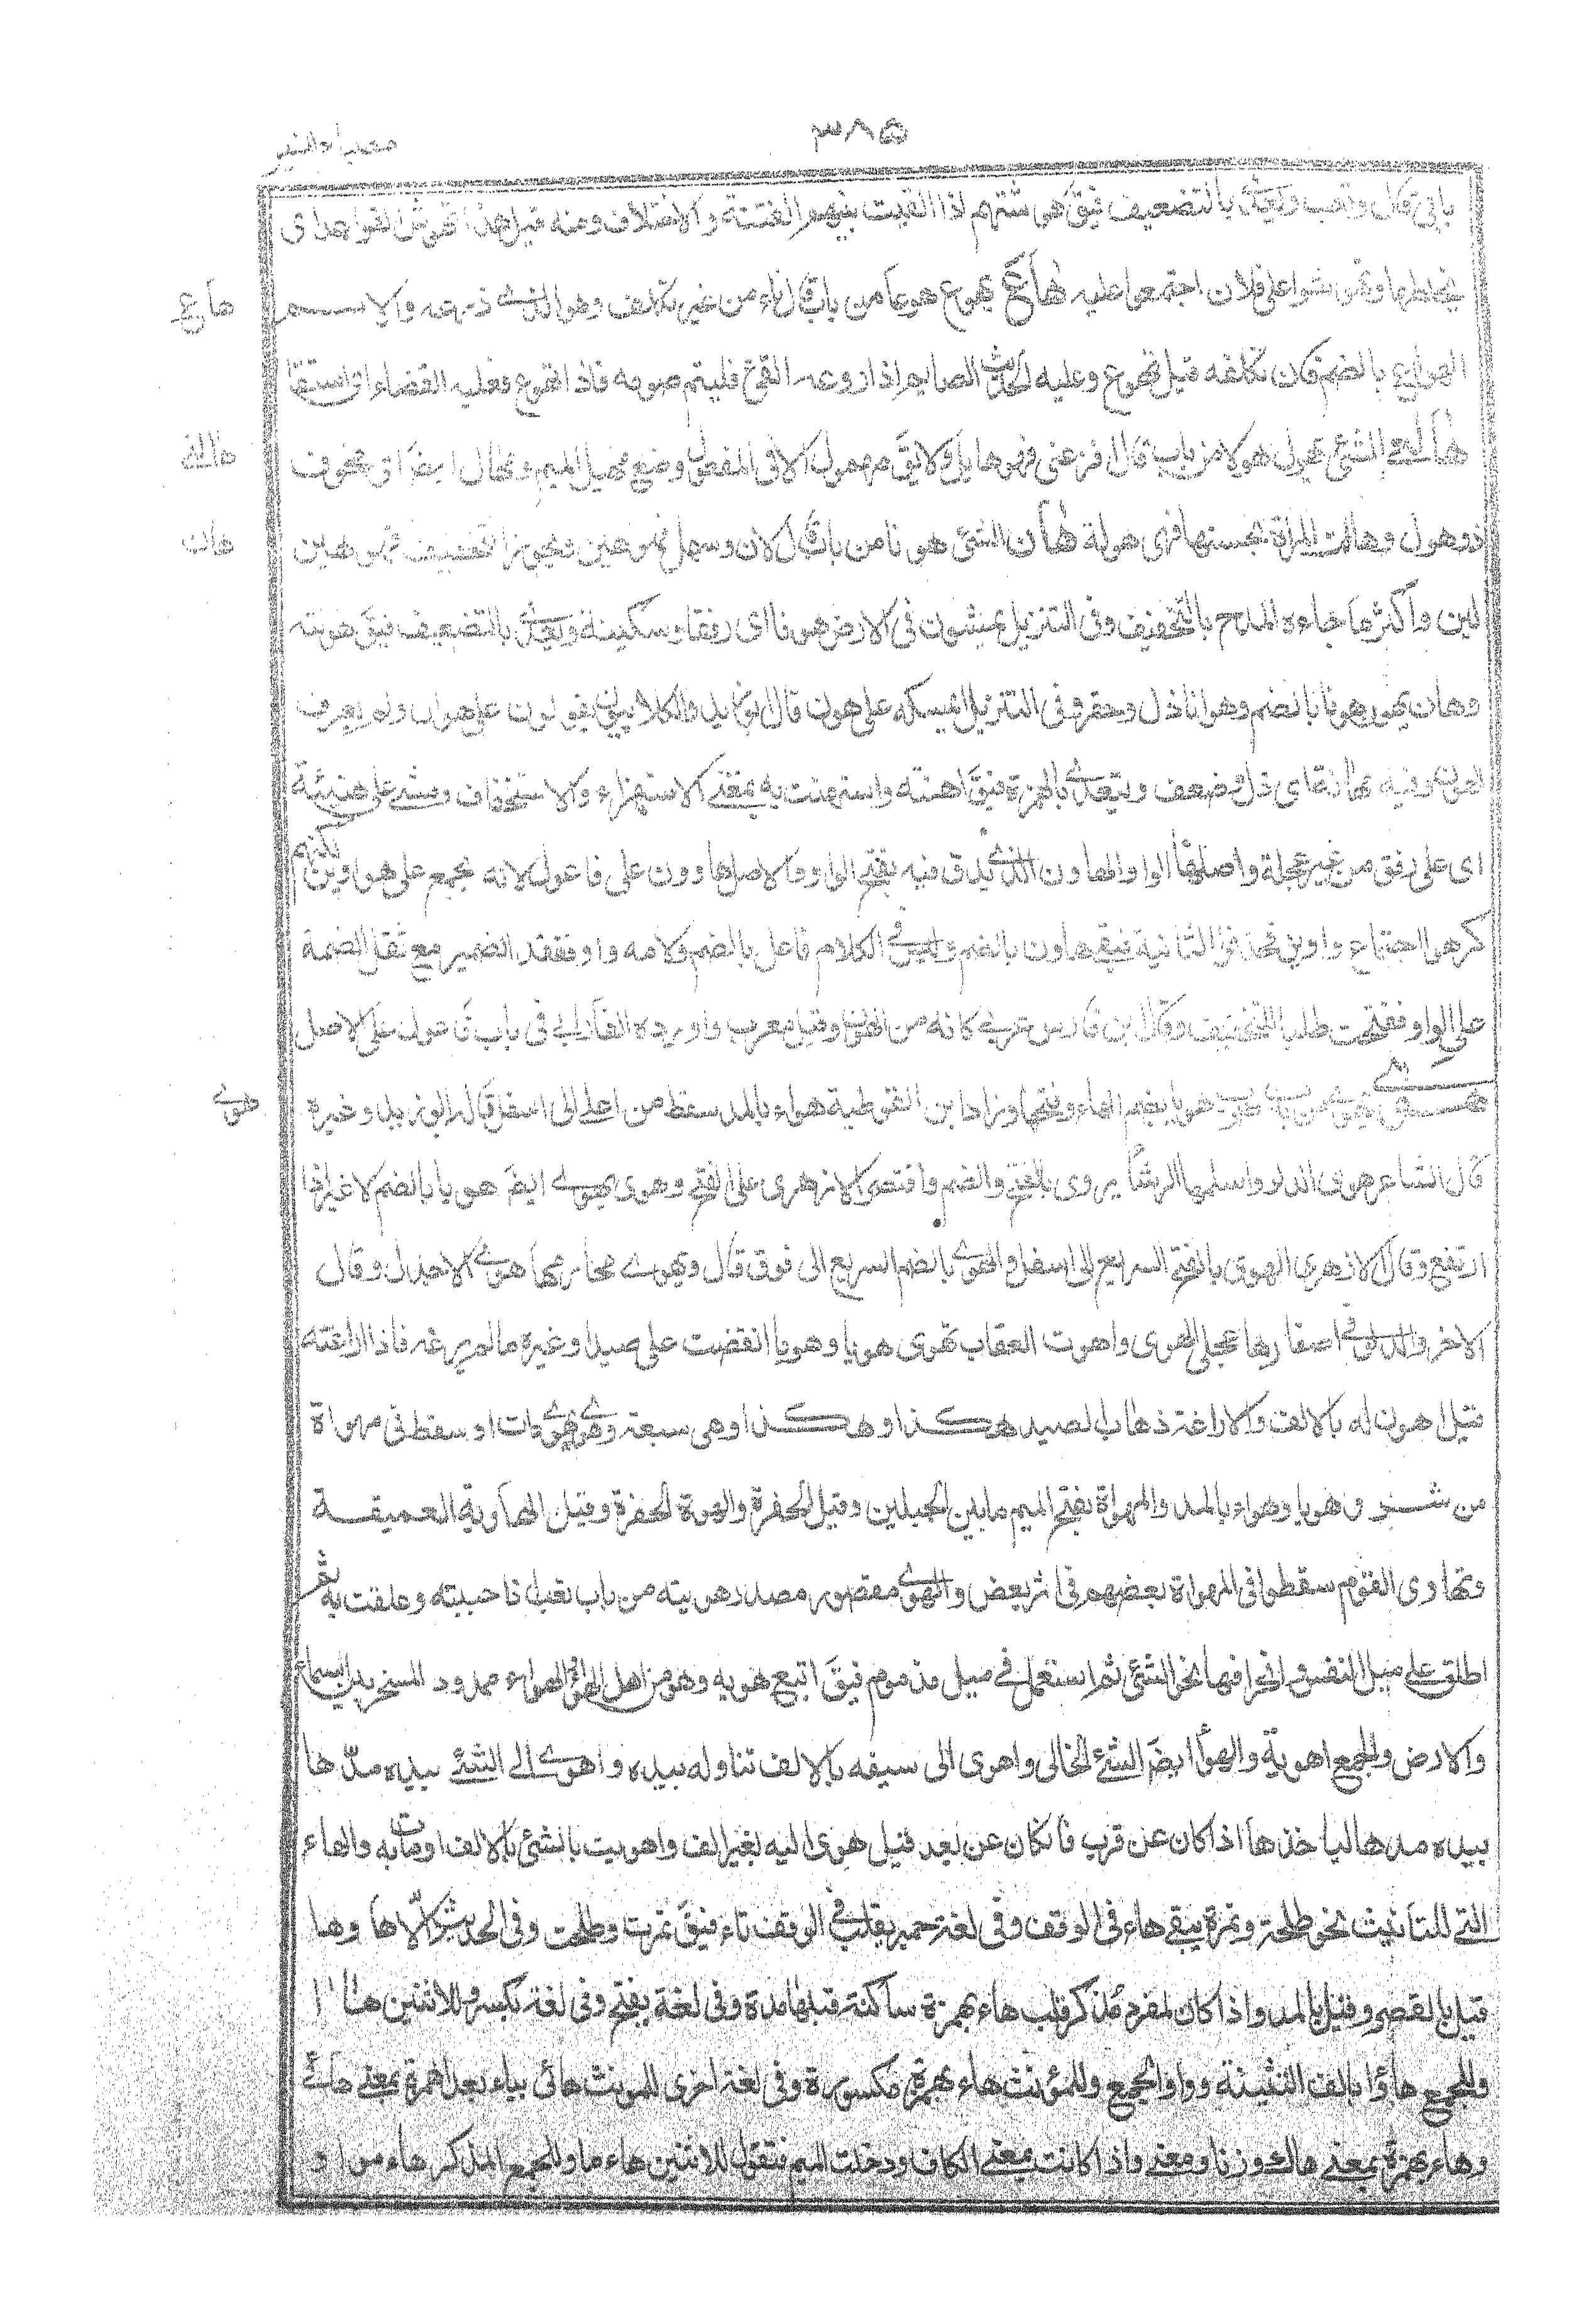 ٣٨٥
مصباح المنير
بابى قال وتعب ويعدى بالتضعيف فيقَ هوشتهم اذا القيت بينهم الفتنة والاختلاف ومنه قيل هذا تهوش القواعد اى
يخلطها وتهوشوا على فلان اجتمعوا عليه هَاعَ يهوع هوعا من باب قال قاء من غير تكلف وهو الذى ذرعه والاســـم
هاع
الهواع بالضم فان تكلفه قيل تهوع وعليه الحديث الصايم اذا ذرعه القئ فليتم صومه فاذا تهوع فعليه القضاء اى استقا
هَالَنى الشئ يهول هولا من باب قال افزعنى فهو هايل ولا يقَ مهول الا فى المفعول وضيع مهيل الميم وتهال ايضَ اى مخوف
هاله
ذو هول وهالت المراة بحسنها فهى هولة هَانَ الشئ هونا من باب قال لان وسهل فهو هين ويجوز التخفيف فهو هين
هان
لين واكثر ما جاءه المدح بالتخفيف وفى التنزيل يمشون فى الارض هونا اى رفقا وسكينة ويعدى بالتضعيف فيقَ هونته
وهان يهون هونا بالضم وهوانا ذل وحقر وفى التنزيل ايمسكه على هون قال ابو زيد والكلابيون يقولون على هوان ولم يعرف
الهون وفيه مهانة اى ذل وضعف ويتعدى بالهمزة فيقَ اهنته واستهنت به بمعنى الاستهزاء والاستخفاف ومشى على هنيئة
اى على رفق من غير عجلة واصلها الواو والهاون الذى يدق فيه بفتح الواو والاصل هاوون على فاعول لانه يجمع على هواوين لكنهم
كرهوا اجتماع واوين فحذفوا الثانية فبقى هاون بالضم وليس فى الكلام فاعل بالضم ولامه واو ففقد النظير مع ثقل الضمة
على الواو ففتحت طلبا للتخفيف وقال ابن فارس عربى كانه من الهون وقيل معرب واورده الفارابى فى باب فاعول على الاصل
هـــوى يهوى من باب ضرب هويا بضم الهاء وفتحها وزاد ابن القوطية هواء بالمد سقط من اعلى الى اسفل قاله ابو زيد وغيره
هوى
قال الشاعر هوى الدلو واسلمها الرشا يروى بالفتح والضم واقتصر الازهرى على الفتح وهوى يهوى ايضَ هويا بالضم لا غير اذا
ارتفع وقال الازهرى الهوى بالفتح السريع الى اسفل والهوى بالضم السريع الى فوق قال ويهوى مخارمها هوى الاجدل وقال
الاخر والدلو فى اصعادها عجلى الهوى واهوت العقاب تهوى هويا وهويا انقضت على صيد او غيره مالم يرغه فاذا اراغته
قيل اهوت له بالالف والاراغة ذهاب الصيد هكــذا وهكــذا وهى تتبعه وهوى يهوى مات او سقط فى مهواة
من شــرف هويا وهواء بالمد والمهواة بفتح الميم ما بين الجبلين وقيل الحفرة والهوة الحفرة وقيل الهاوية العميقــة
وتهاوى القوم سقطوا فى المهواة بعضهم فى اثر بعض والهوى مقصور مصدر هويته من باب تعب اذا حببته وعلقت به ثم
اطلق على ميل النفس وانحرافها نحو الشئ ثم استعمل فى ميل مذموم فيقَ اتبع هويه وهو من اهل الاهواء والهواء ممدود المسخر بين السماء
والارض والجمع اهوية والهوَا ايضَ الشئ الخالى واهوى الى سيفه بالالف تناوله بيده واهوى الى الشئ بيده مدّها
بيده مدها لياخذها اذا كان عن قرب فان كان عن بعد قيل هوى اليه بغير الف واهويت بالشئ بالالف اومات به والهاء
التى للتانيث نحو طلحة وتمرة يبقى هاء فى الوقف وفى لغة حمير يقلب فى الوقف تاء فيقَ تمرت وطلحت وفى الحديث الّا ها وها
قيل بالقصر وقيل بالمد واذا كان لمفرد مذكر قلب هاء بهمزة ساكنة قبلها مدة وفى لغة بفتح وفى لغة بكسر وللاثنين هاَ ا
وللجمع هاؤا بالف التثنية وواو الجمع وللمؤنث هاء بهمزة مكسورة وفى لغة اخرى للمونث هائى بياء بعد الهمزة بمعنى هاتى
وهاء بهمزة بمعنى هاك وزنا ومعنى واذا كانت بمعنى الكاف ودخلت الميم فتقول للاثنين هاءما وللجمع المذكر هاءموا و